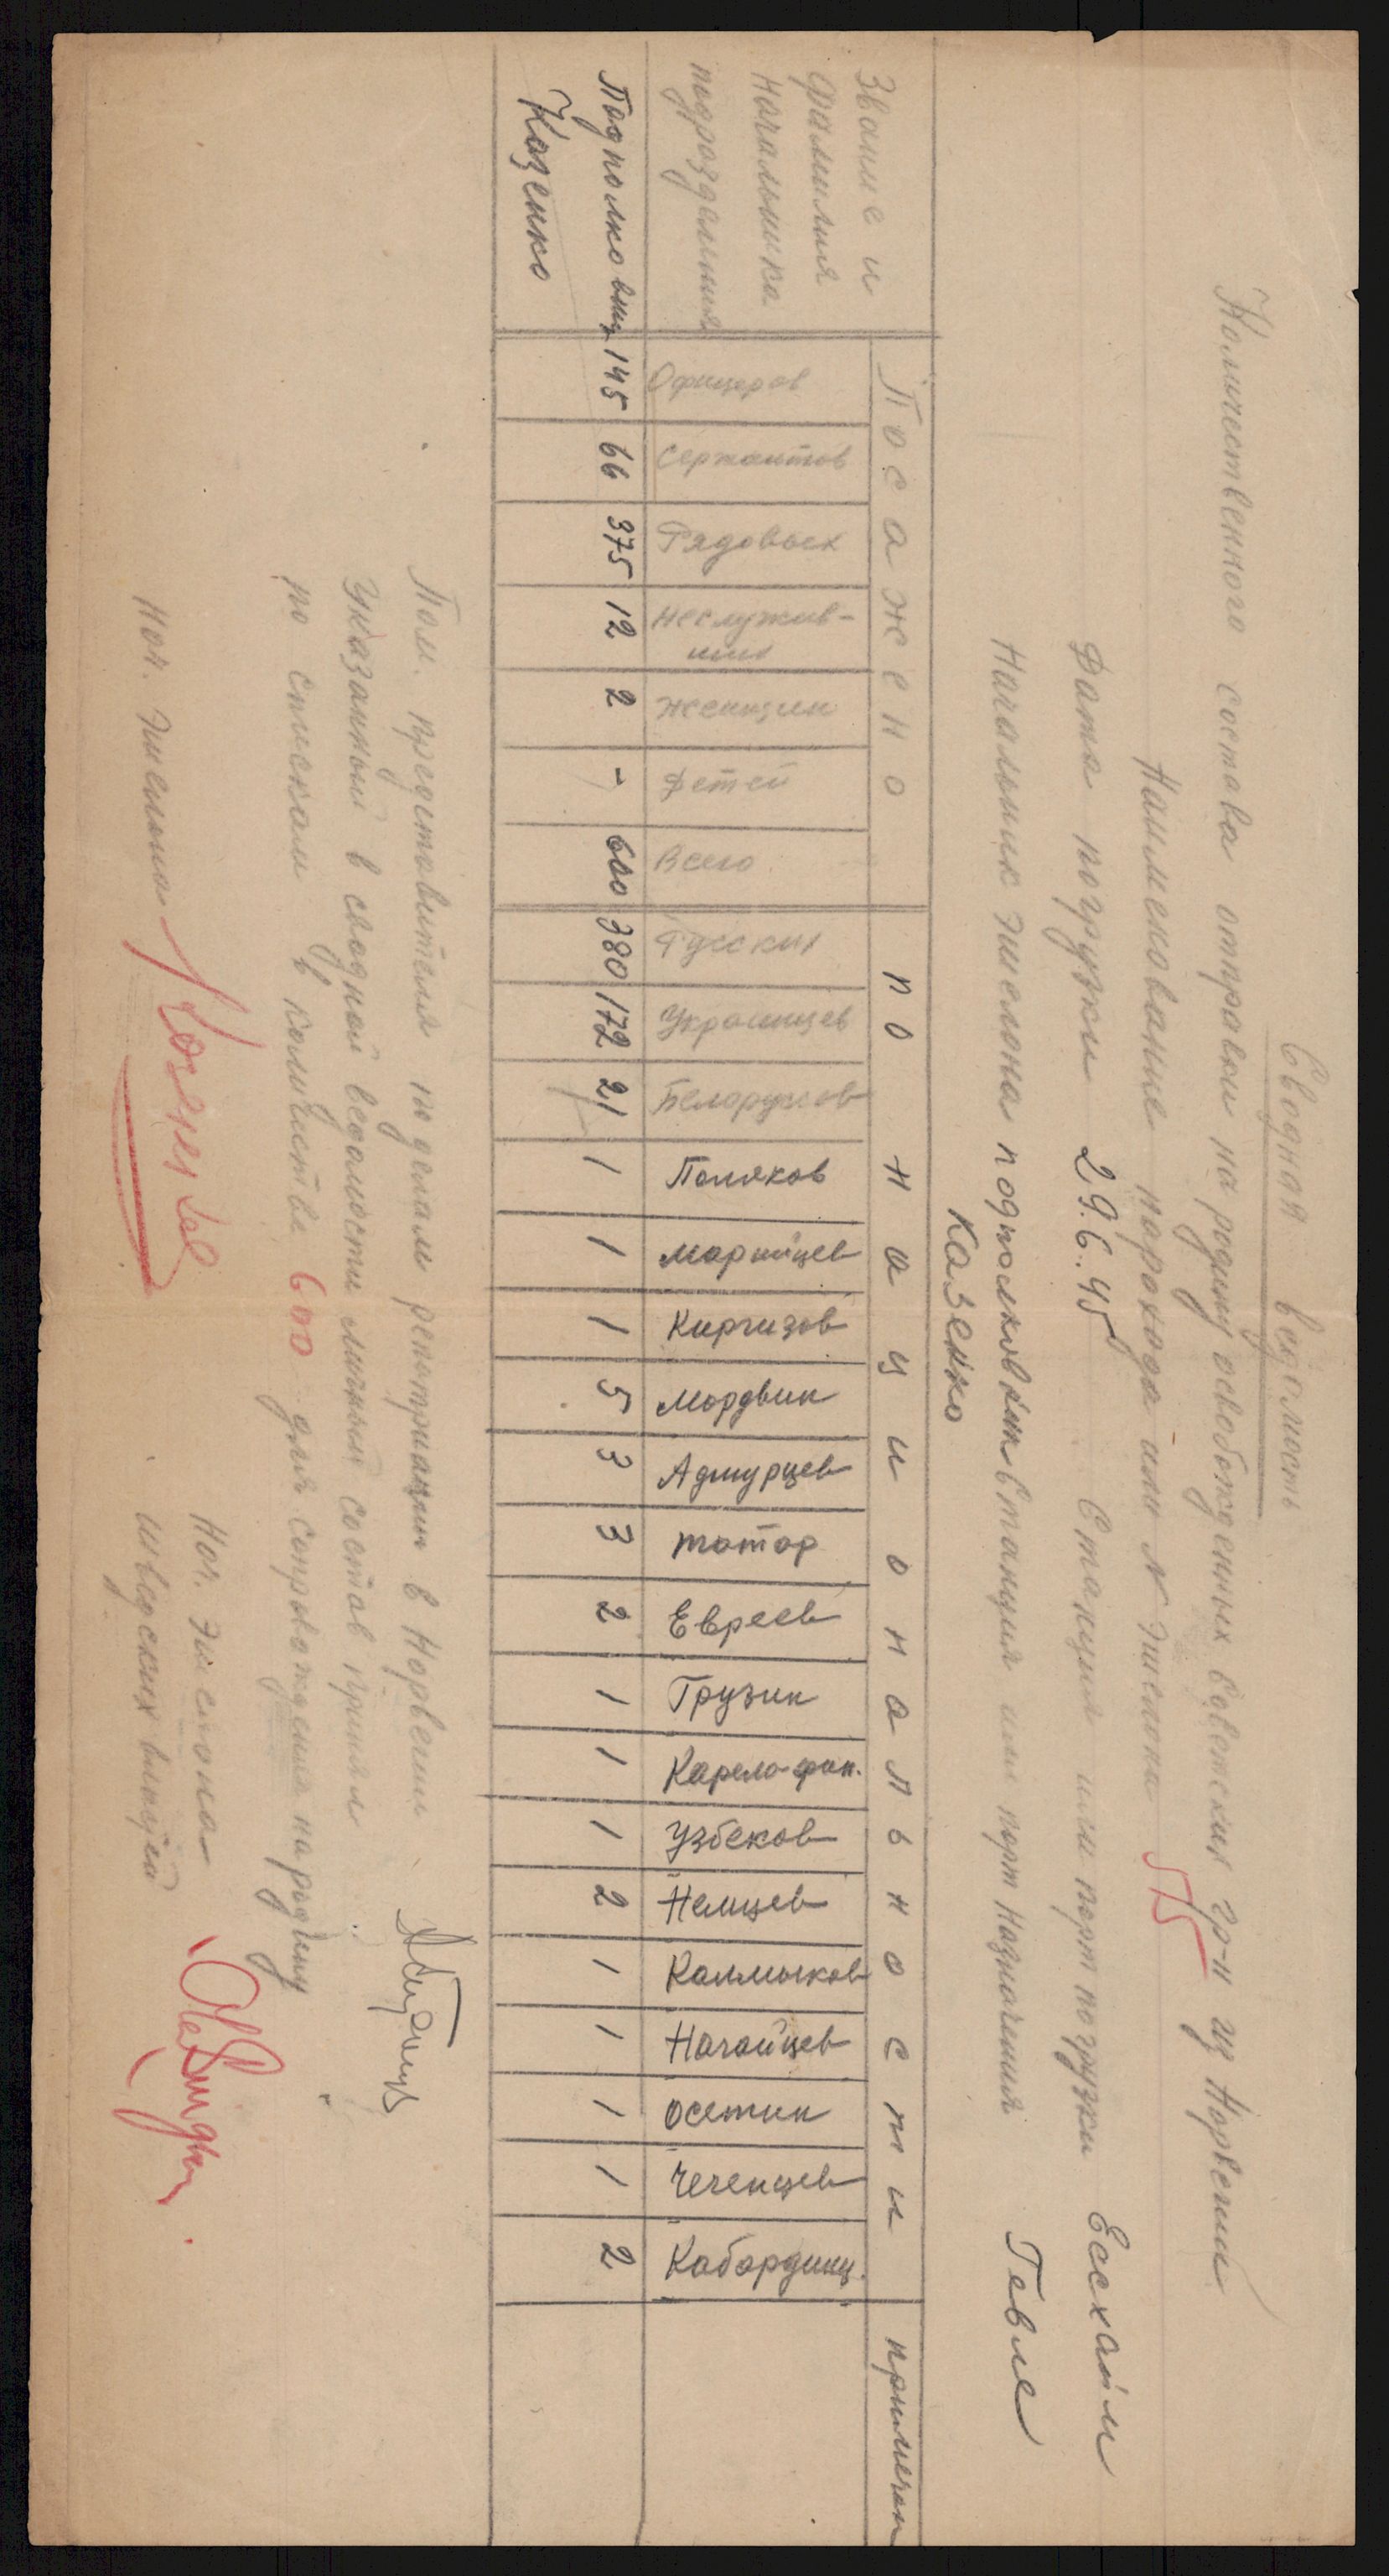 Сводная ведомость
Количественного состава отправки на родину освобожденных Советских гр-н из Норвегии
Наименование парохода или № эшелона 575
Дата погрузки 29.6.45 Станция или порт погрузки Ессхайм
Начальник эшелона подполковник Станция или порт назначения Гевле
Казенко
Звание и фамилия начальника подразделения
Посажено
По национальности
примечан
Офицеров
Сержантов
Рядовых
Неслужив-
ших
Женщин
Детей
Всего
Русских
Украинцев
Белоруссов
Поляков
Марийцев
Киргизов
Мордвин
Адмурцев
Татар
Евреев
Грузин
Карело-фин.
Узбеков
Немцев
Калмыков
Нагайцев
Осетин
Чеченцев
Кабардинц.
Подполковник 145 66 375 12 2 - 600 380 172 21 1 1 1 5 3 3 2 1 1 1 2 1 1 1 1 2
Казенко
Пом. представителя по делам репатриации в Норвегии
Указанный в сводной ведомости личный состав принял
по спискам в количестве 600 для сопровождения на родину
Нач. эшелона
Нач. эшелона
шведских властей